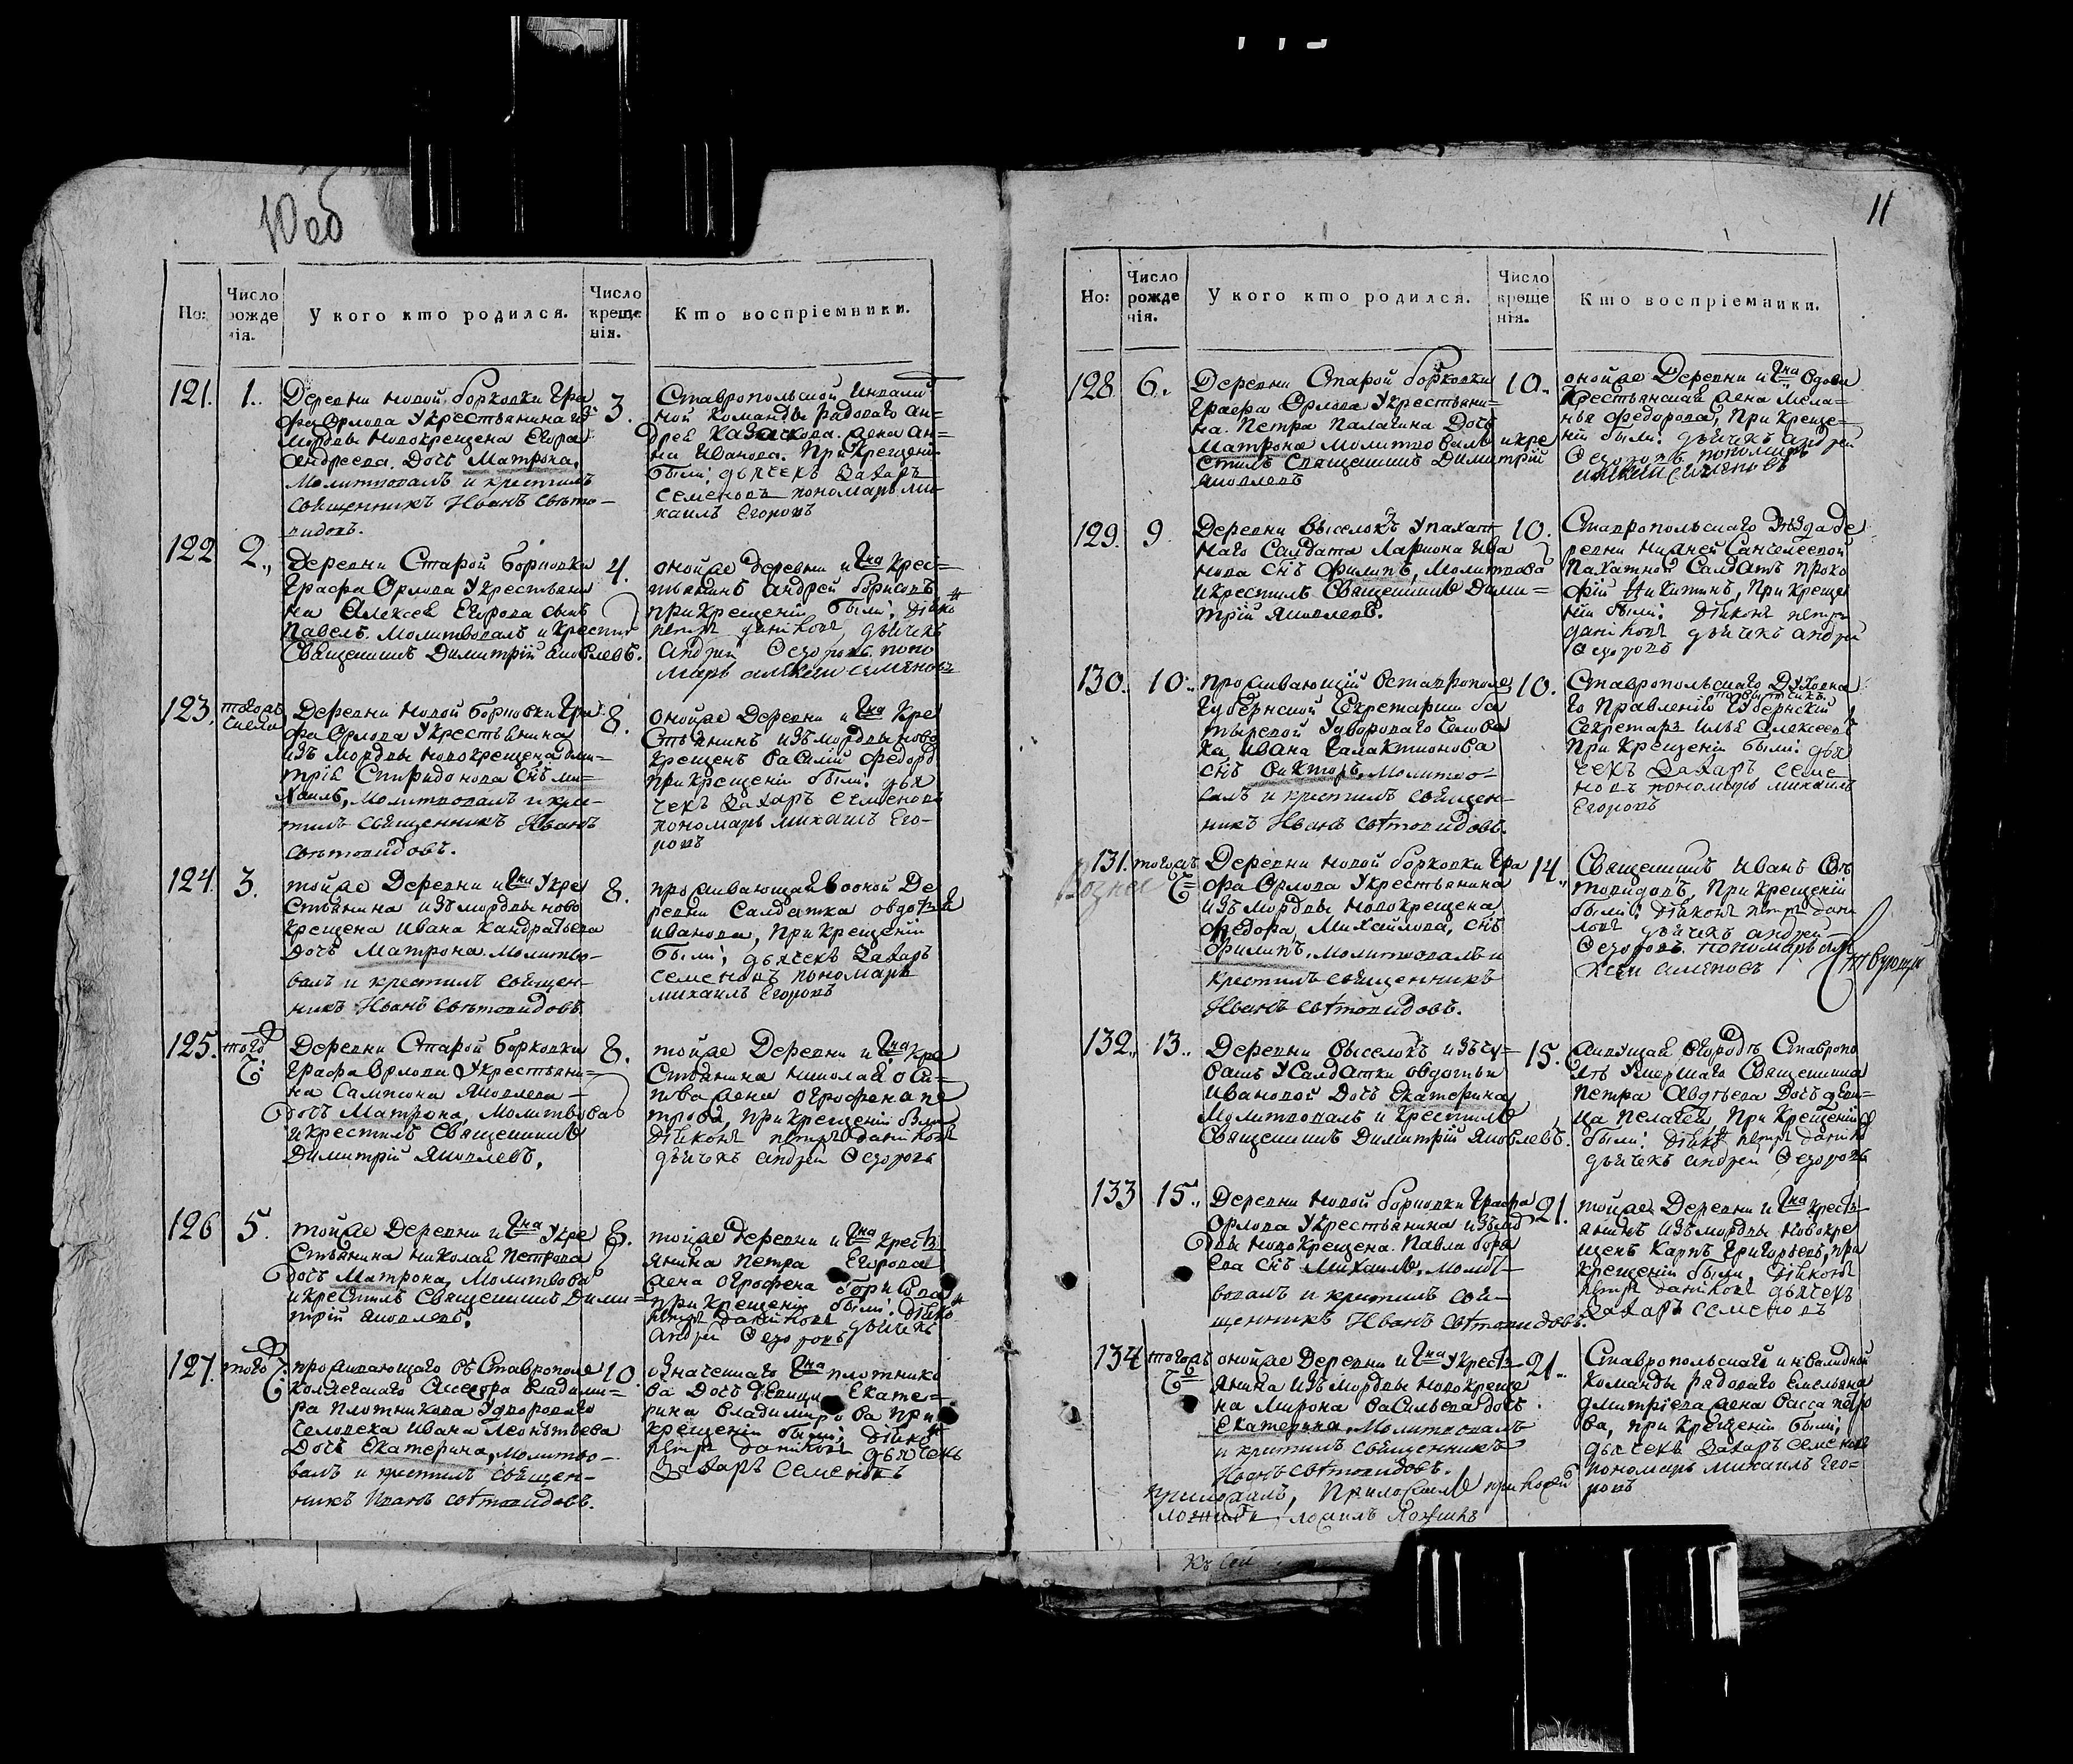 10 об
Но:
Число рожденія.
У кого кто родился.
Число крещенія.
Кто воспріемники.
121.
1.
Деревни новой борковки Гра
фа Орлова у крестьянина из
Мордвы новокрещена Егора
Андреева. Дочь Матрона.
Молитвовалъ и крестилъ
священникъ Иванъ Свѣто-
видовъ.
3.
Ставропольской Инвалид
ной команды рядоваго Ан-
дрея Казакова жена Ан-
на Иванова. При крещеніи
были: дьячекъ Захаръ
Семеновъ пономарь Ми-
хаилъ Егоровъ
122
2.
Деревни Старой борковки
Графа Орлова у крестьяни
на Алексея Егорова сынъ
Павелъ. Молитвовалъ и крестил
Священникъ Димитрій Яковлевъ.
4.
оной же деревни и Гна крес-
тьянинъ Андрей борисовъ
при крещеніи были: діако
петръ даниловъ, дьячекъ
Андрей Федоровъ поно
марь алексей семеновъ
123.
тогожъ
числа
Деревни новой борковки Гра
фа Орлова у крестьянина
изъ мордвы новокрещена дми-
трія Спиридонова снъ ми-
хаилъ, молитвовалъ и кре-
тилъ священникъ Иванъ
свѣтовидовъ.
8.
оной же Деревни и Гна Кре
стьянинъ изъ мордвы ново
крещенъ василій федоро
при крещеніи были: дья
чекъ Захаръ семеновъ
пономарь михаилъ Его-
ровъ
124.
3.
той же Деревни и Гна у кре
стьянина изъ мордвы ново
крещена ивана кандратьева
дочь Матрона. Молитво-
валъ и крестилъ священ-
никъ Иванъ свѣтовидовъ
8.
проживающая в оной Де
ревни салдатка овдотья
иванова, при крещеніи
были; дьячекъ Захаръ
семеновъ пономарь
михаилъ Егоровъ
125.
того
Ч:
Деревни Старой борковки
Графа Орлова у крестьяни-
на Сампсона Яковлева
дочь Матрона, Молитвова
и крестилъ Священникъ
Димитрій Яковлевъ.
8.
той же Деревни и Гна Кре
стьянина николая оси-
пова жена огрофена пе
трова, при крещеніи были
діаконъ петръ даниловъ
дьячекъ андрей Федоровъ
126
5.
той же Деревни и Гна у кре
стьянина николая петрова
дочь Матрона, Молитвова
и крестилъ Священникъ Дими-
трій яковлевъ.
8.
той же деревни и Гна крест
янина петра Егорова
жена огрофена борисова
при крещеніи были: діако
петръ даниловъ дьячекъ
андрей Федоровъ
127.
того Ч:
проживающаго въ Ставрополе
коллежскаго Ассесора владими-
ра плотникова у двороваго
человека ивана Леонтьева
дочь Екатерина, молитво-
валъ и крестилъ священ-
никъ Иванъ свѣтовидовъ.
10
означеннаго Гна плотнико
ва дочь девица Екате-
рина владимирова при
крещеніи были: діако
петръ даниловъ дьячекъ
Захаръ семеновъ
11
Но:
Число рожденія.
У кого кто родился.
Число крещенія.
Кто воспріемники.
128
6.
Деревни Старой борковки
Графа Орлова у крестьяни-
на. Петра Палагина Дочь
Матрона молитвовалъ и кре
стилъ Священникъ Димитрій
яковлевъ
10.
оной же Деревни и Гна вдова
Крестьянская жена мела-
нья федорова, при креще-
ніи были: дьячекъ андрей
Федоровъ пономарь
алексей семеновъ
129.
9.
Деревни выселокъ у пахат
наго Салдата Лариона ива
нова снъ филипъ, Молитвова
и крестилъ Священникъ Дими-
трій Яковлевъ.
10.
Ставропольскаго уѣзда де
ревни нижней Санчелеевой
пахатной Салдатъ проко
фій Никитинъ, при креще
ніи были: діаконъ петръ
даниловъ дьячекъ андрей
Федоровъ
130.
10.
проживающій в ставрополе
Губернской Секретарши ба
тыревой у двороваго челове
ка ивана Галактионова
снъ викторъ, молитво-
валъ и крестилъ священ-
никъ Иванъ свѣтовидовъ.
10.
Ставропольскаго Духовна
го Правленія Губернскій
Секретарь илья алексеевъ
при крещеніи были: дья
чекъ Захаръ семе
новъ пономарь михаилъ
Егоровъ
131.
тогожъ
Ч
Деревни новой борковки Гра
фа Орлова у крестьянина
изъ мордвы новокрещена
федора, Михайлова, снъ
филипъ. молитвовалъ и
крестилъ священникъ
Иванъ свѣтовидовъ.
14.
Священникъ иванъ свѣ
товидовъ, при крещеніи
были; діаконъ петръ дани
ловъ дьячекъ андрей
Федоровъ пономарь але
ксей семеновъ
132.
13.
Деревни выселокъ изъ чу-
вашъ у салдатки овдотьи
ивановой дочь Екатерина
молитвовалъ и крестилъ
Священникъ Димитрій Яковлевъ.
15.
живущая вгородѣ Ставропо
лѣ умершаго Священника
петра Авдѣева дочь деви-
ца пелагея, при крещеніи
были: діакон петръ данило
дьячекъ андрей Федоровъ
133
15.
Деревни новой борковки Графа
Орлова у крестьянина изъ мор
двы новокрещена. Павла бори
ева снъ Михаилъ, молит-
вовалъ и крестилъ свя-
щенникъ Иванъ свѣтовидовъ.
21.
той же Деревни и Гна крест
янинъ изъ мордвы новокре
щенъ Карпъ Григорьевъ, при
крещеніи были, діаконъ
петръ даниловъ дьячекъ
Захаръ семеновъ
134
тогожъ
Ч
оной же Деревни и Гна у крест-
янина изъ мордвы новокреще
на мирона васильева дочь
Екатерина, молитвовалъ
и крестилъ священникъ
Иванъ свѣтовидовъ.
21.
Ставропольскаго инвалидной
команды рядоваго емельяна
дмитріева жена васса петро
ва, при крещеніи были;
дьячекъ Захаръ семеновъ
пономарь михаилъ Его-
ровъ